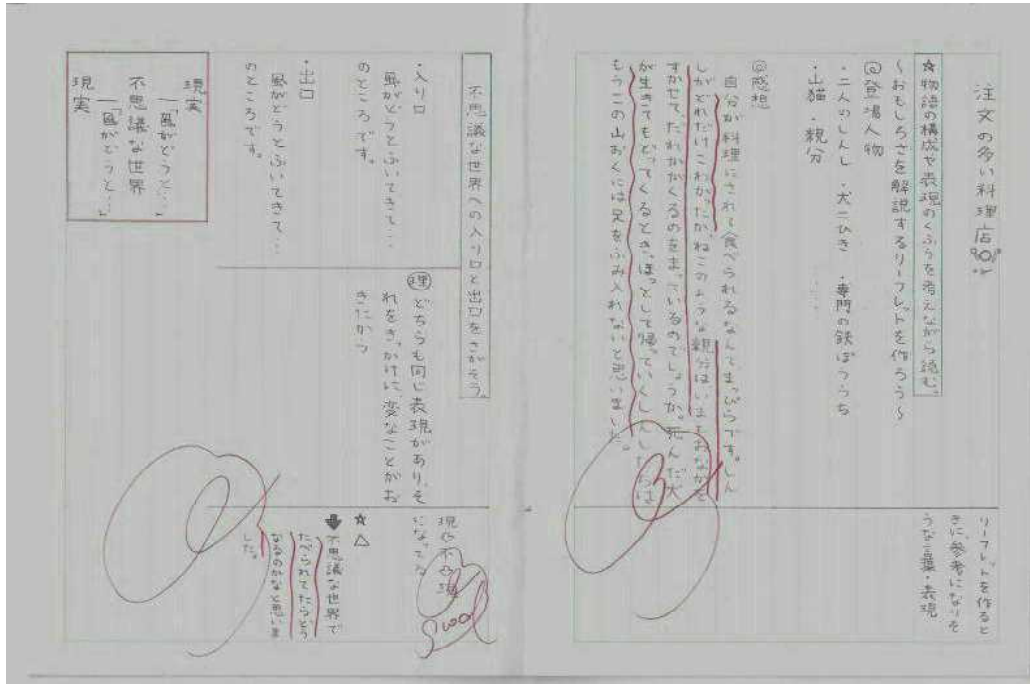 注文の多い料理店
☆物語の構成や表現のくふうを考えながら読む。
〜おもしろさを解説するリーフレットを作ろう〜
◎登場人物
・二人のしんし ・犬二ひき ・専門の鉄ぽううち
・山猫 ・親分
◎感想
自分が料理にされて食べられるなんてまっぴらです。しん
しがどれだけこわかったか。ねこのような親分はいまもおなかを
すかせてだれかがくるのをまっているのでしょうか。死んだ犬
が生きてもどってくるとき、ほっとして帰っていくしんしたちは
もうこの山おくには足をふみ入れないと思いました。
リーフレットを作ると
きに、参考になりそ
うな言葉・表現
不思議な世界への入り口と出口をさがそう。
・入り口
風がどうとふいてきて…
のところです。
・出口
風がどうとふいてきて…
のところです。
現実
「風がどうと…」
不思議な世界
「風がどうと…」
現実
理 どちらも同じ表現があり、そ
れをきっかけに、変なことがお
きたから
になってる
good
☆△
↓不思議な世界で
たべられてたらどう
なるのかなと思いま
した。